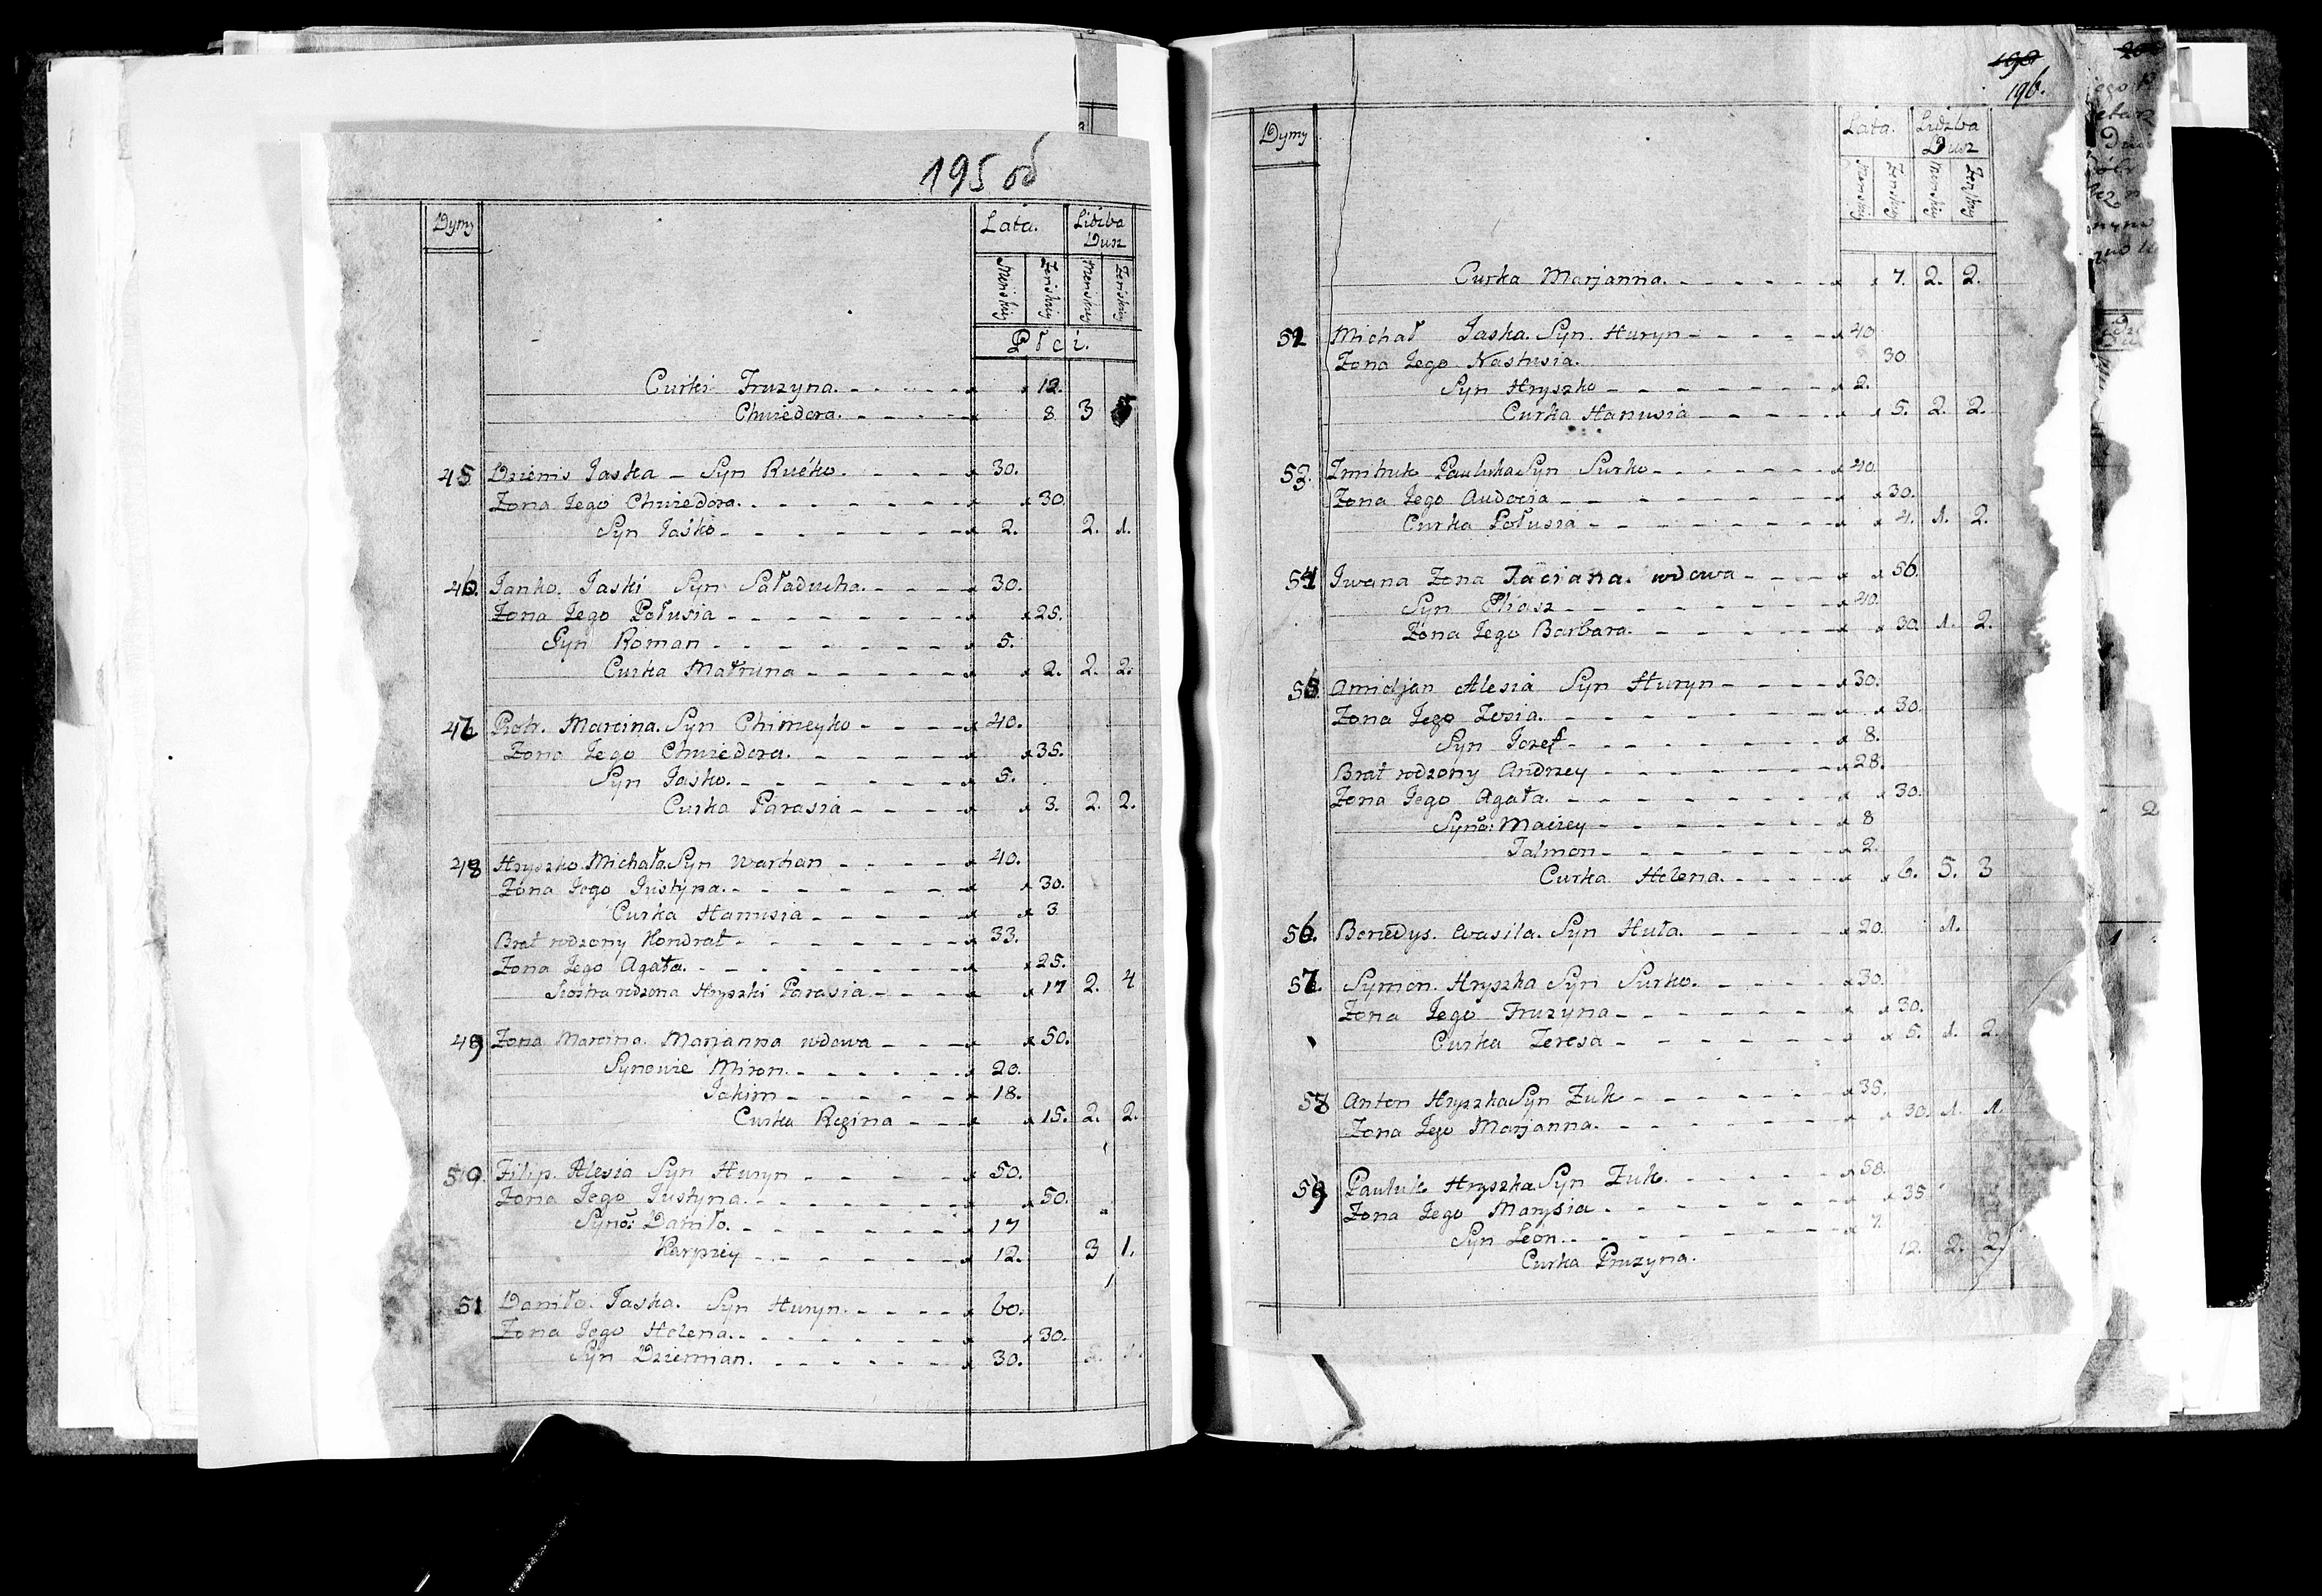 195 об
Dymy
Lata.
Liczba Dusz
Męskiey
Żeńskiey
Męskiey
Żeńskiey
Płci.
Curki Fruzyna. 12.
Chwiedora. 8 3 5
45 Dziemis Jaska - Syn Rućko. 30.
Zona Jego Chwiedora. 30
Syn Jaśko 2. 2. 1.
46. Janko. Jaski Syn Saładucha. 30.
Zona Jego Połusia 25.
Syn Roman 5.
Curka Matruna 2. 2. 2.
47 Piotr. Marcina. Syn Chimeyko 40.
Zona Jego Chwiedora. 35.
Syn Jasko. 5.
Curka Parasia 3. 2. 2.
48 Hryszko Michała Syn Warhan 40.
Zona Jego Justyna. 30.
Curka Hanusia 3
Brat rodzony Kondrat 33.
Zona Jego Agata. 25.
Siostra rodzona Hryszki Parasia 17 2. 4
49 Zona Marcina. Marjanna wdowa 50.
Synowie Miron. 20.
Jakim 18.
Curka Regina 15. 2. 2.
50 Filip. Alesia Syn Huryn 50.
Zona Jego Justyna. 50.
Syno: Daniło. 17
Karpiey 12. 3 1.
51 Daniło. Jaska. Syn Huryn. 60.
Zona Jego Helena. 30.
Syn Dziemian. 30.
196.
Dymy
Lata.
Liczba Dusz
Męskiey
Żeńskiey
Męskiey
Żeńskiey
Curka Marjanna. 7. 2. 2.
52 Michał Jaska. Syn. Huryn 40
Zona Jego Nastusia. 30
Syn Hryszko 2.
Curka Hanusia 5. 2. 2.
53. Zmitruk Pauluka Syn Surko 40
Zona Jego Audocia 30.
Curka Połusia 4. 1. 2.
54 Jwana Zona Taciana. wdowa 56.
Syn Pliasz 40.
Zona Jego Barbara. 30. 1. 2.
55 Amidjan Alesia Syn Huryn 30.
Zona Jego Zosia. 30.
Syn Jozef 8.
Brat rodzony Andrzey 28.
Zona Jego Agata. 30.
Syno: Maciey 8
Talmon 2.
Curka Helena. 6. 5. 3
56. Benedys. Wasila. Syn Huta. 20. 1.
57. Symon. Hryszka Syn Surko. 30.
Zona Jego Fruzyna 30.
Curka Teresa 5. 1. 2.
58 Anton Hryszka Syn Zuk 35.
Zona Jego Marjanna. 30. 1. 1.
59 Pauluk Hryszka. Syn Zuk. 58.
Zona Jego Marysia 35
Syn Leon. 7.
Curka Pruzyna. 12. 2. 2.